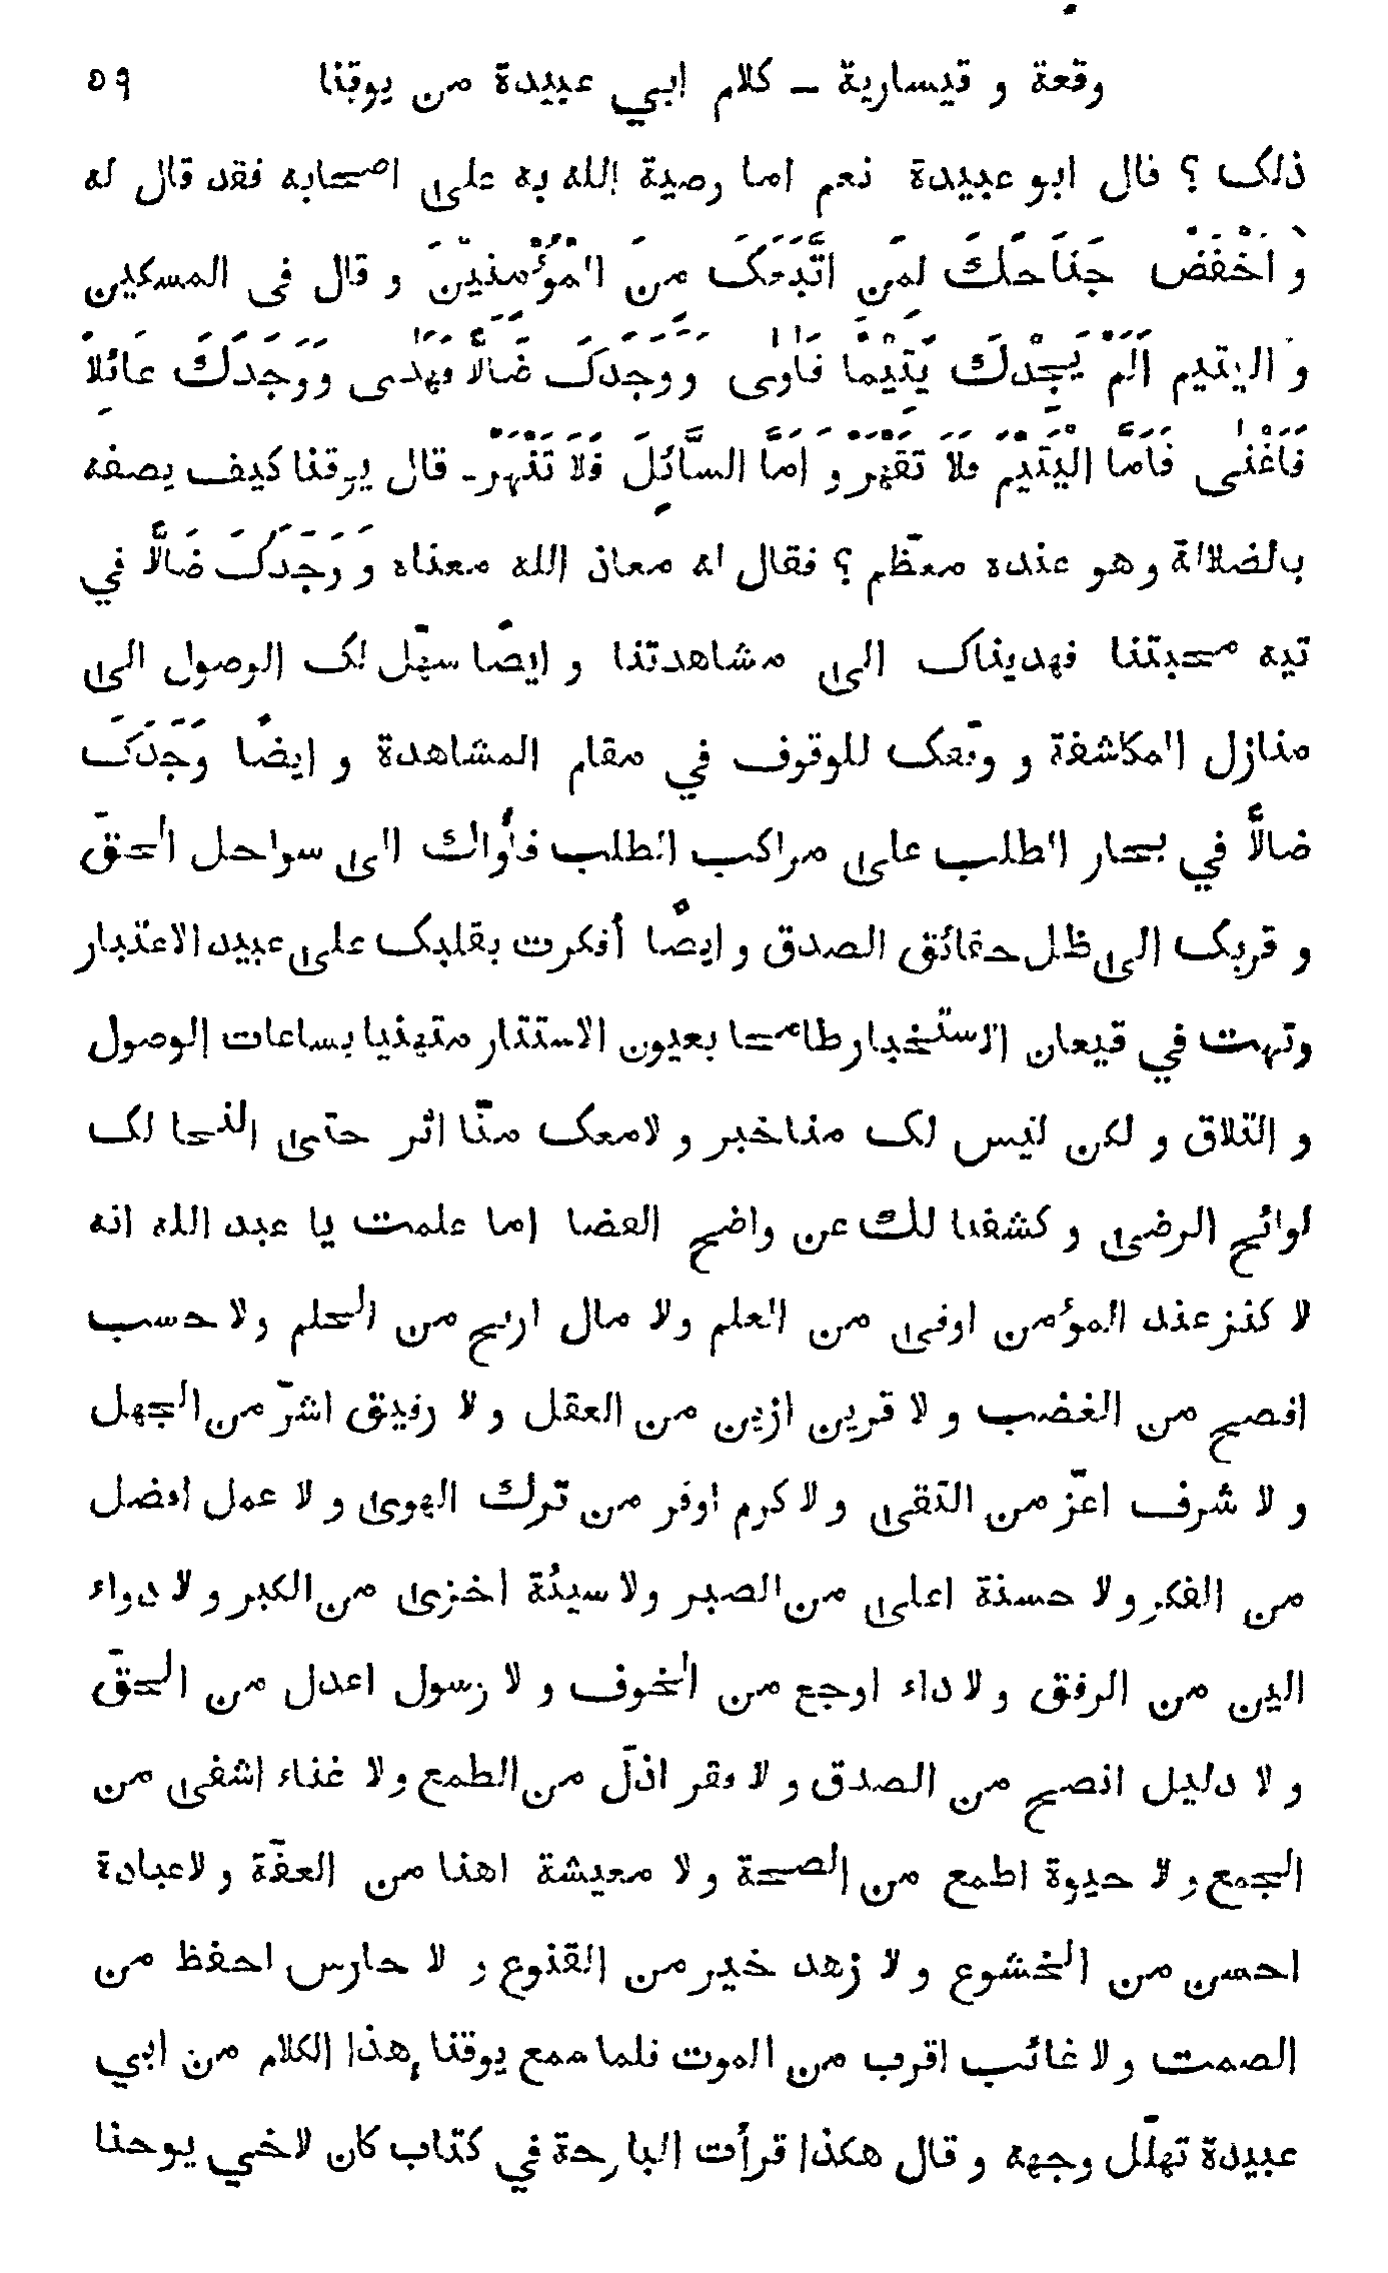 وقعة و قيسارية ــ كلام ابي عبيدة من يوقنا ٥٩
ذلك ؟ قال ابو عبيدة نعم اما وصية الله به على اصحابه فقد قال له
وَ اخْفَضْ جَنَاحَكَ لمَن اتَّبَعَكَ مِنَ الْمُؤْمنيْنَ و قال فى المسكين
و اليتيم اَلَمْ يَجِدْكَ يَتِيْمًا فَاٰوٰى وَ وَجَدَكَ ضَالًّا فَهَدٰى وَ وَجَدَكَ عَائلاً
فَاَغْنٰى فَاَمَّا الْيَتِيْمَ فَلاَ تَقْهَرْ وَ اَمَّا السَّائِلَ فَلاَ تَنْهَرْ ـ قال يوقنا كيف يصفه
بالضلالة و هو عنده معظّم ؟ فقال له معاذ الله معناه وَ وَجَدَكَ ضَالًّا في
تيه محبتنا فهديناك الى مشاهدتنا و ايضًا سهّل لك الوصول الى
منازل المكاشفة و وفقك للوقوف في مقام المشاهدة و ايضًا وَجَدَكَ
ضالًّا في بحار الطلب على مراكب الطلب فأواك الى سواحل الحقّ
و قربك الى ظل حقائق الصدق و ايضًا أفكرت بقلبك على عبيد الاعتبار
وتهت في قيعان الاستخبار طامحا بعيون الاستتار متهنيا بساعات الوصول
و التلاق و لكن ليس لك منا خبر و لا معك منّا اثر حتى لك
لوائح الرضى و كشفنا لك عن واضح القضا اما علمت يا عبد الله انه
لا كنز عند المؤمن اوفى من العلم ولا مال اربح من الحلم ولا حسب
افصح من الغضب و لا قرين ازين من العقل و لا رفيق اشرّ من الجهل
و لا شرف اعزّ من التقى و لا كرم اوفر من ترك الهوى و لا عمل افضل
من الفكر و لا حسنة اعلى من الصبر ولا سيئة اخزى من الكبر و لا دواء
الين من الرفق و لا داء اوجع من الخوف و لا رسول اعدل من الحقّ
و لا دليل انصح من الصدق و لا فقر اذلّ من الطمع ولا غناء اشفى من
الجمع و لا حيوة اطمع من الصحة و لا معيشة اهنا من العفّة و لا عبادة
احسن من الخشوع و لا زهد خير من القنوع و لا حارس احفظ من
الصمت و لا غائب اقرب من الموت فلما سمع يوقنا هذا الكلام من ابي
عبيدة تهلّل وجهه و قال هكذا قرأت البارحة في كتاب كان لاخي يوحنا